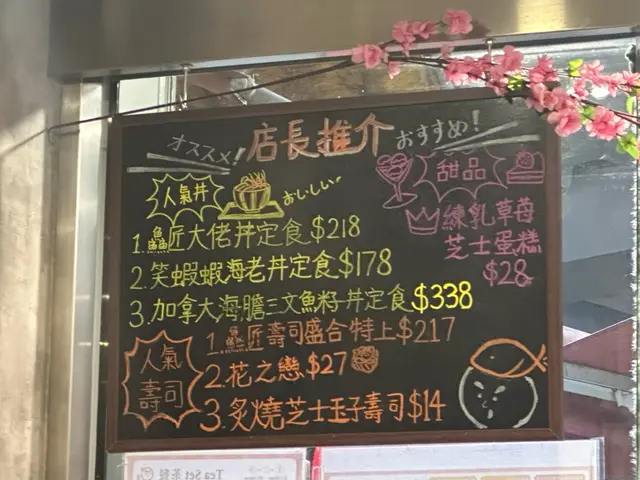 オススメ！
店長推介
おすすめ！
人氣丼
おいしい
1.鱻匠大佬丼定食$218
2.笑蝦蝦海老丼定食$178
3.加拿大海膽三文魚籽丼定食$338
甜品
練乳草苺
芝士蛋糕
$28
人氣
壽司
1.鱻匠壽司盛合特上$217
2.花之戀$27
3.炙燒芝士玉子壽司$14
Tea Set 茶餐